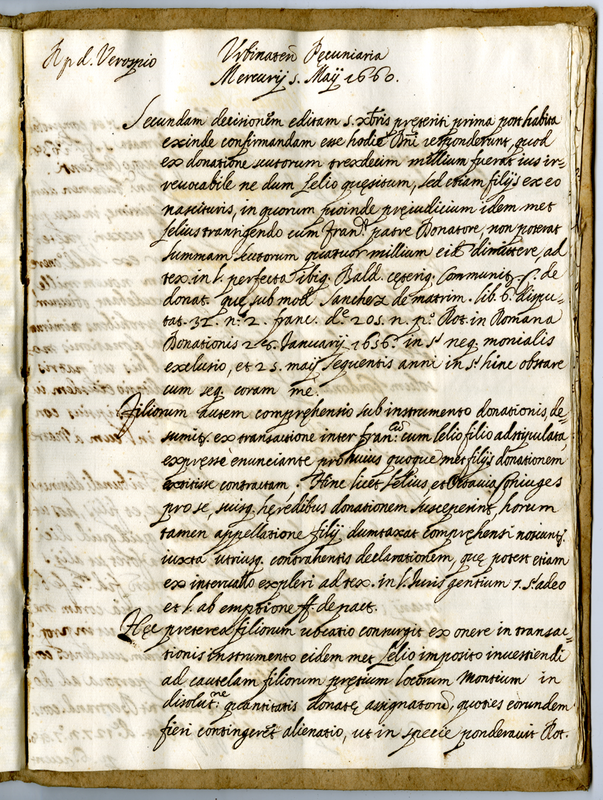 R p d. Verospio
Urbinaten Pecuniaria
Mercurij 5. Maij 1660.
Secundam decisionem editam 5. xbris preteriti prima post habita
exinde confirmandam esse hodie Dni responderunt, quod
ex donatione scutorum trexdecim millium fuerat ius ir-
revocabile ne dum Lelio quesitum, sed etiam filijs ex eo
nascituris, in quorum proinde prejudicium idem met
Lelius transigendo cum Franc. patre Donatore, non poterat
summam scutorum quatuor millium eid dimittere, ad
tex. in l. perfecta ibiq. Bald. ceteriq. Communit C. de
donat. que sub mod. Sanchez de matrim. lib. 6. dispu-
tat. 32. n. 2. Franc. de 205. n. po. Rot. in Romana
Donationis 28. Januarij 1656. in s. neq. monialis
exclusio, et 25. maij sequentis anni in s. hinc obstare
cum seq. coram me.
Filiorum autem comprehensio sub instrumento donationis, de-
sumit. ex transactione inter Franc.um cum Lelio filio adstipulata
expresse enunciante pro huius quoque met filijs donationem
extitisse contractam. Hinc licet Lelius et Octavia Coniuges
pro se, suisq. heredibus donationem susceperint, horum
tamen appellatione filij dumtaxat comprehensi noscunt.
iuxta utriusq. contrahentis declarationem, que potest etiam
ex intervallo expleri ad tex. in l. Iuris gentium 7. s. adeo
et l. ab emptione ff. de pact.
Hec preterea filiorum vocatio consurgit ex onere in transac-
tionis instrumento eidem met Lelio imposito investiendi
ad cautelam filiorum pretium locorum Montium in
disolut.ne quantitatis donate assignatorum, quoties eorundem
fieri contingeret alienatio, ut in specie ponderavit Rot.